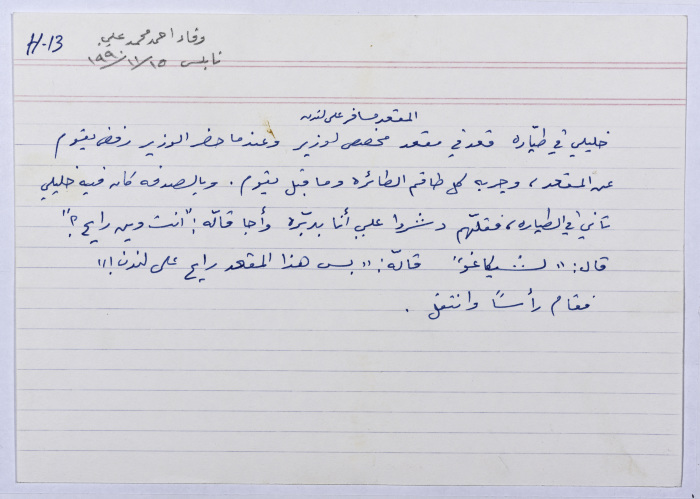 H-13
وفاء احمد محمد علي
نابلس ١٩٩٠/١١/١٥
المقعد مسافر على لندن
خليلي في طيّاره قعد في مقعد مخصص لوزير وعندما حضر الوزير رفض يقوم
عن المقعد، وجربه كل طاقم الطائرة وما قبل يقوم. وبالصدفه كان فيه خليلي
تاني في الطياره، فقلّهم دشروا علي أنا بدبّره وأجا قالّه: "انت وين رايح؟"
قال: "لشيكاغو" قالّه: "بس هذا المقعد رايح على لندن!!"
فقام رأسًا وانتقل.